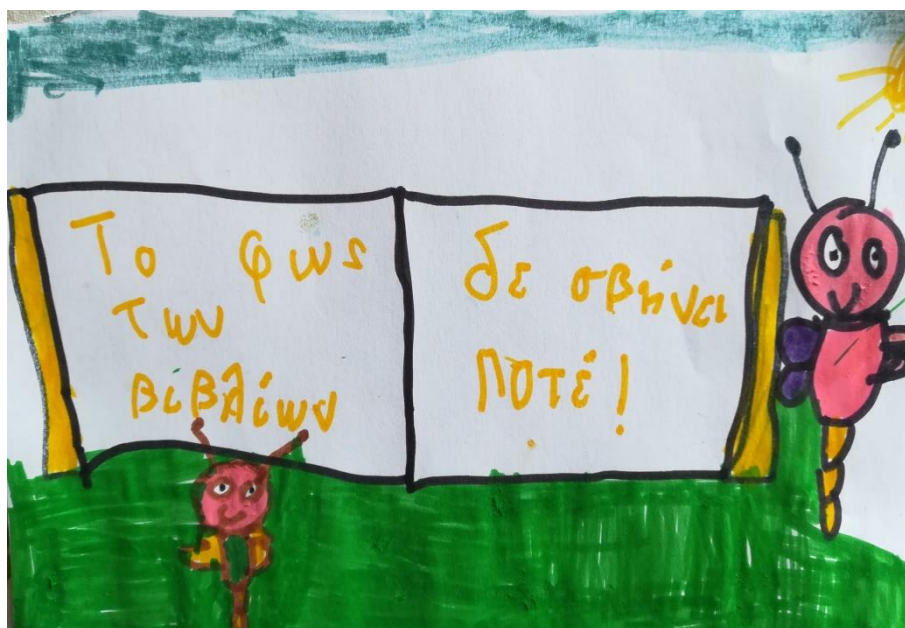 Το φως
των
βιβλίων
δε σβήνει
ποτέ!